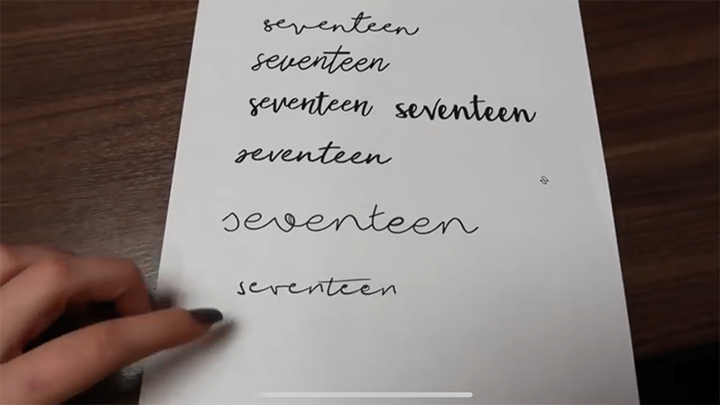 seventeen
seventeen
seventeen seventeen
seventeen
seventeen
seventeen